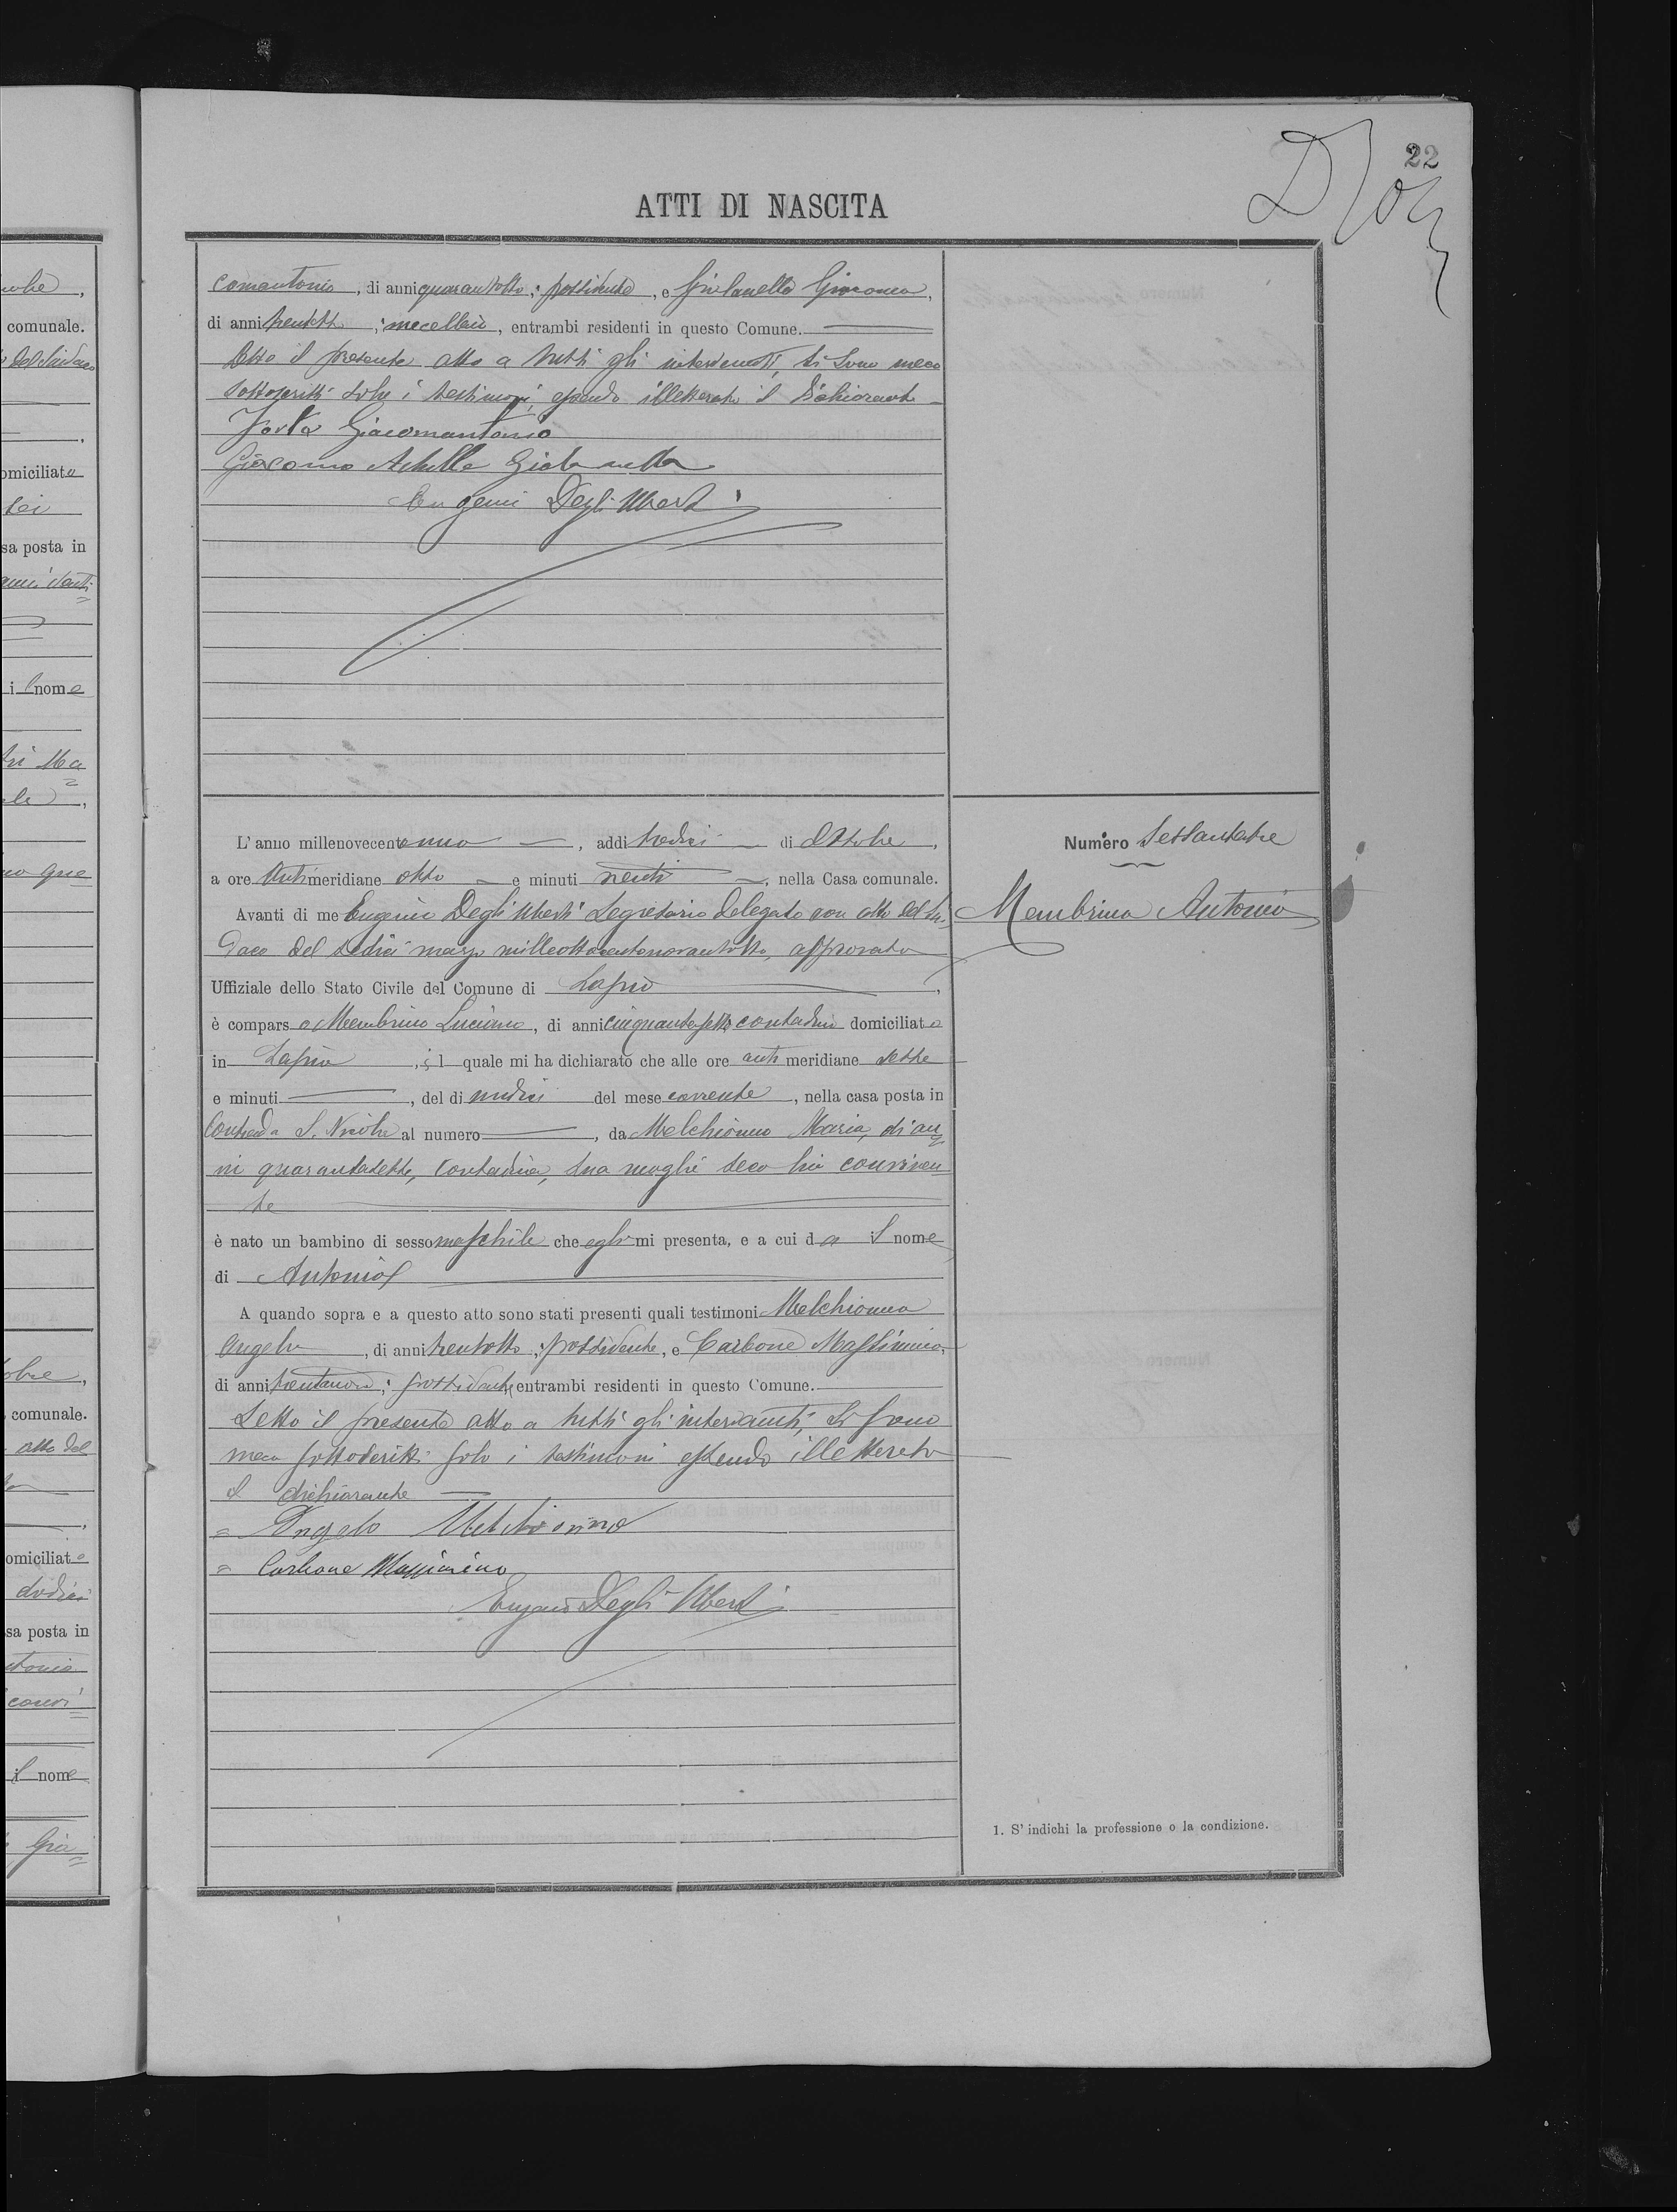 22
ATTI DI NASCITA
comantonio, di anni quarantotto; possidente, e Giolanella Giacomo,
di anni trentotto; macellaio, entrambi residenti in questo Comune.
Letto il presente atto a tutti gli intervenuti, si sono meco
sottoscritti solo i testimoni, essendo illetterato il dichiarante
Giacomantonio
Giacomo Achille Giolanella
Eugenio Degli Uberti
L'anno millenovecentouno, addì tredici di Ottobre,
a ore Antimeridiane otto e minuti venti, nella Casa comunale.
Avanti di me Eugenio Degli Uberti Segretario delegato con atto del Sin-
daco del sedici marzo milleottocentonovantotto, approvato
Uffiziale dello Stato Civile del Comune di Lapio,
è comparso Membrino Luciano, di anni cinquantasette contadino domiciliato
in Lapio, il quale mi ha dichiarato che alle ore antimeridiane sette
e minuti, del dì undici del mese corrente, nella casa posta in
Contrada S. Nicola al numero, da Melchionno Maria, di an=
ni quarantasette, contadina, sua moglie seco lui conviven
te
è nato un bambino di sesso maschile che egli mi presenta, e a cui da il nome
di Antonio
A quando sopra e a questo atto sono stati presenti quali testimoni Melchionno
Angelo, di anni trentotto; possidente, e Carbone Massimino,
di anni trentanove; possidente, entrambi residenti in questo Comune.
Letto il presente atto a tutti gli intervenuti, si sono
meco sottoscritti solo i testimoni essendo illetterato
il dichiarante
= Angelo Melchionno
= Carbone Massimino
Eugenio Degli Uberti
Numero Sessantatre
Membrino Antonio
1. S' indichi la professione o la condizione.
comunale.
domiciliato
sa posta in
il nome
comunale.
atto del
omiciliato
dodici
sa posta in
il nome